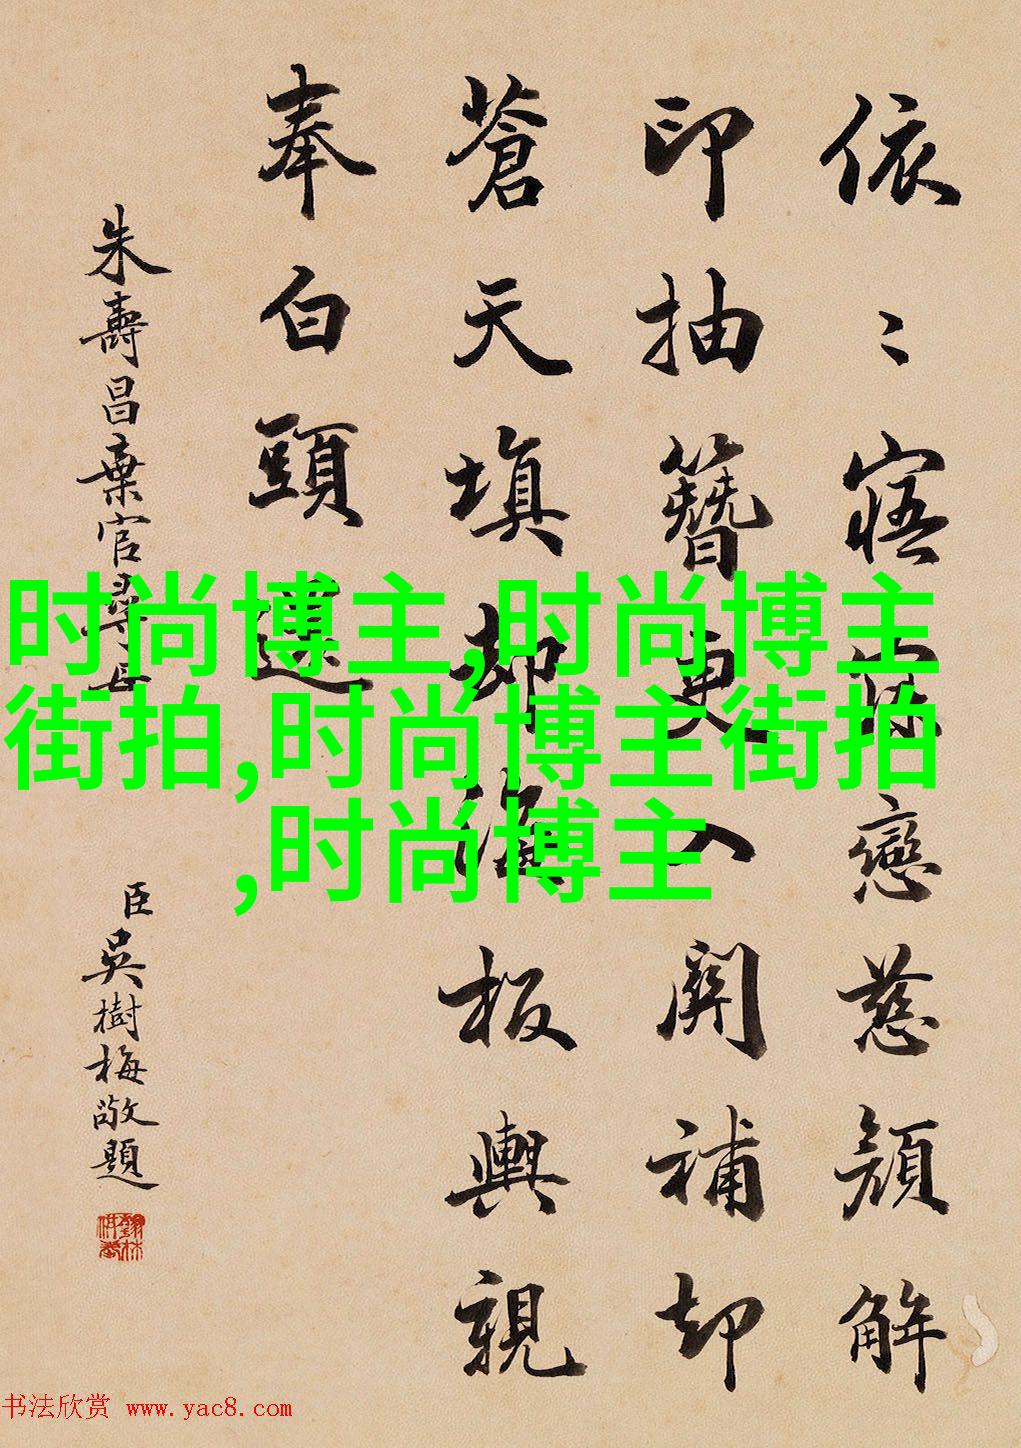 依〻寤寐戀慈顏解
印抽簪更入關補却
蒼天填却海板輿親
奉白頭還
朱壽昌棄官尋母
臣吳樹梅敬題
时尚博主,时尚博主
街拍,时尚博主街拍
,时尚博主
书法欣赏 www.yac8.com